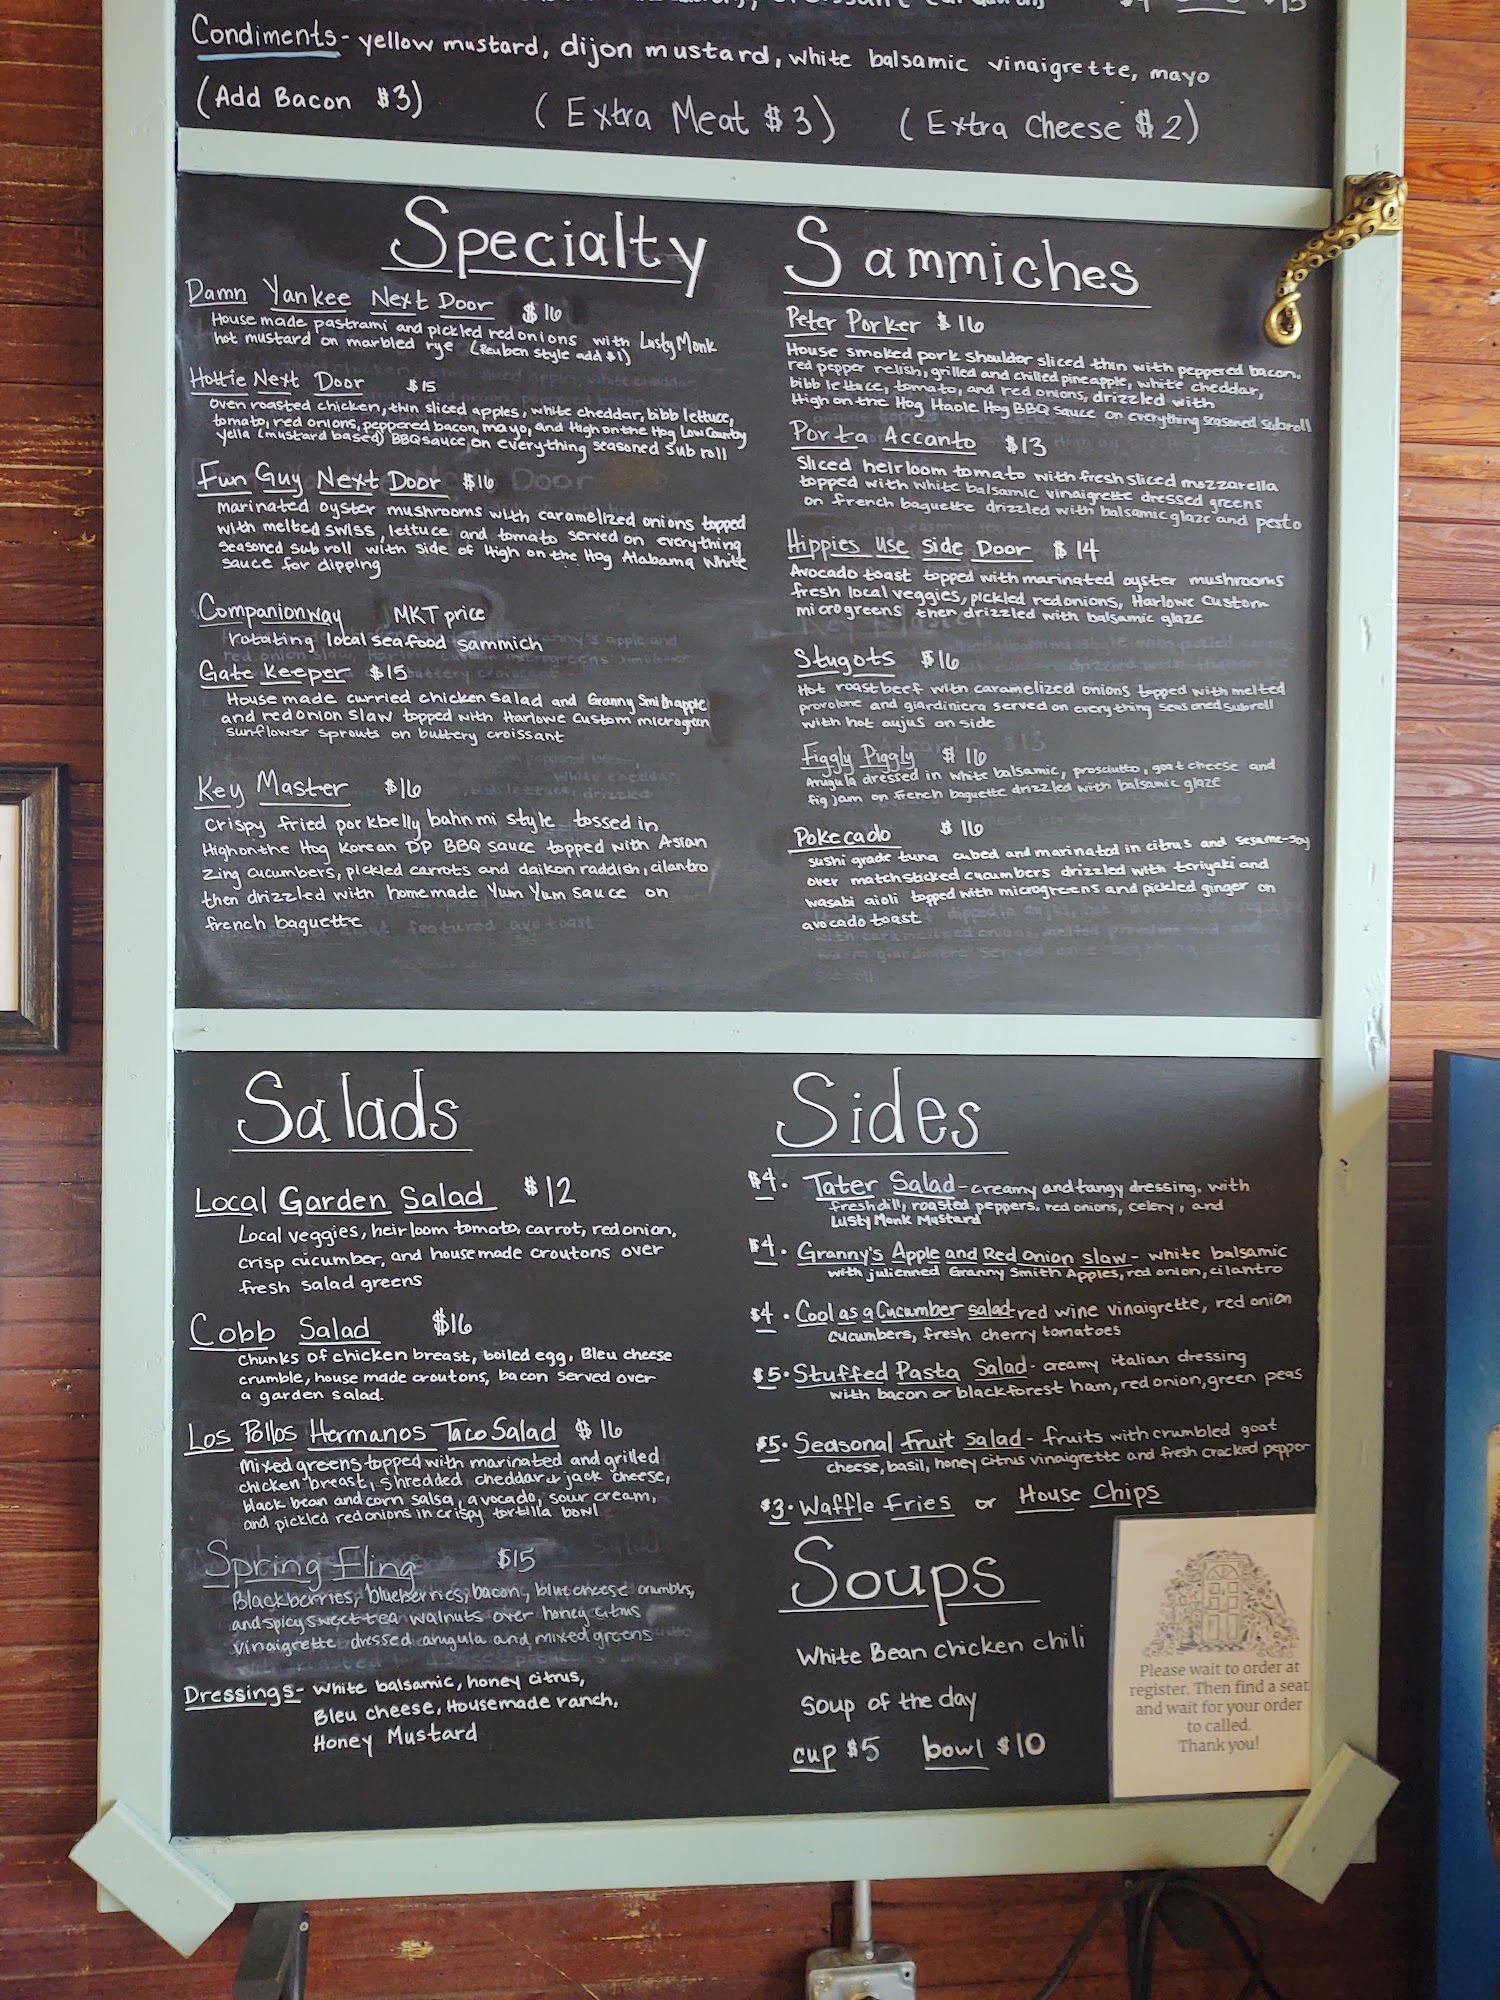 Condiments - yellow mustard, dijon mustard, white balsamic vinaigrette, mayo
(Add Bacon $3) (Extra Meat $3) (Extra Cheese $2)
Specialty Sammiches
Damn Yankee Next Door $16
House made pastrami and pickled red onions with Lusty Monk
hot mustard on marbled rye (Reuben style add $1)
Hottie Next Door $15
oven roasted chicken, thin sliced apples, white cheddar, bibb lettuce,
tomato, red onions, peppered bacon, mayo, and High on the Hog Low Country
yella (mustard based) BBQ sauce on everything seasoned sub roll
Fun Guy Next Door $16
marinated oyster mushrooms with caramelized onions topped
with melted swiss, lettuce and tomato served on everything
seasoned sub roll with side of High on the Hog Alabama White
sauce for dipping
Companionway MKT price
rotating local seafood sammich
Gate Keeper $15
House made curried chicken salad and Granny Smith apple
and red onion slaw topped with Harlowe Custom microgreen
sunflower sprouts on buttery croissant
Key Master $16
Crispy fried porkbelly bahn mi style tossed in
High on the Hog Korean DP BBQ sauce topped with Asian
zing cucumbers, pickled carrots and daikon raddish, cilantro
then drizzled with homemade Yum Yum sauce on
french baguette
Peter Porker $16
House smoked pork shoulder sliced thin with peppered bacon,
red pepper relish, grilled and chilled pineapple, white cheddar,
bibb lettuce, tomato, and red onions, drizzled with
High on the Hog Haole Hog BBQ sauce on everything seasoned subroll
Porta Accanto $13
Sliced heirloom tomato with fresh sliced mozzarella
topped with white balsamic vinaigrette dressed greens
on french baguette drizzled with balsamic glaze and pesto
Hippies use side Door $14
Avocado toast topped with marinated oyster mushrooms
fresh local veggies, pickled red onions, Harlowe Custom
microgreens then drizzled with balsamic glaze
Stugots $16
Hot roast beef with caramelized onions topped with melted
provolone and giardiniera served on everything seasoned subroll
with hot aujus on side
Figgly Piggly $16
Arugula dressed in white balsamic, prosciutto, goat cheese and
fig jam on french baguette drizzled with balsamic glaze
Pokecado $16
sushi grade tuna cubed and marinated in citrus and sesame-soy
over matchsticked cucumbers drizzled with teriyaki and
wasabi aioli topped with microgreens and pickled ginger on
avocado toast
Salads
Local Garden Salad $12
Local veggies, heirloom tomato, carrot, red onion,
crisp cucumber, and housemade croutons over
fresh salad greens
Cobb Salad $16
Chunks of chicken breast, boiled egg, Bleu cheese
crumble, house made croutons, bacon served over
a garden salad.
Los Pollos Hermanos Taco Salad $16
Mixed greens topped with marinated and grilled
chicken breast, shredded cheddar + jack cheese,
black bean and corn salsa, avocado, sour cream,
and pickled red onions in crispy tortilla bowl
Spring Fling $15
Blackberries, blueberries, bacon, blue cheese crumbles,
and spicy sweet tea walnuts over honey citrus
vinaigrette dressed arugula and mixed greens
Dressings - White balsamic, honey citrus,
Bleu cheese, Housemade ranch,
Honey Mustard
Sides
$4. Tater Salad - creamy and tangy dressing, with
fresh dill, roasted peppers, red onions, celery, and
Lusty Monk Mustard
$4. Granny's Apple and Red Onion slaw - white balsamic
with julienned Granny Smith Apples, red onion, cilantro
$4. Cool as a Cucumber salad - red wine vinaigrette, red onion
cucumbers, fresh cherry tomatoes
$5. Stuffed Pasta Salad - creamy italian dressing
with bacon or blackforest ham, red onion, green peas
$5. Seasonal Fruit Salad - fruits with crumbled goat
cheese, basil, honey citrus vinaigrette and fresh cracked pepper
$3. Waffle Fries or House Chips
Soups
White Bean chicken chili
Soup of the day
cup $5 bowl $10
Please wait to order at
register. Then find a seat
and wait for your order
to called.
Thank you!